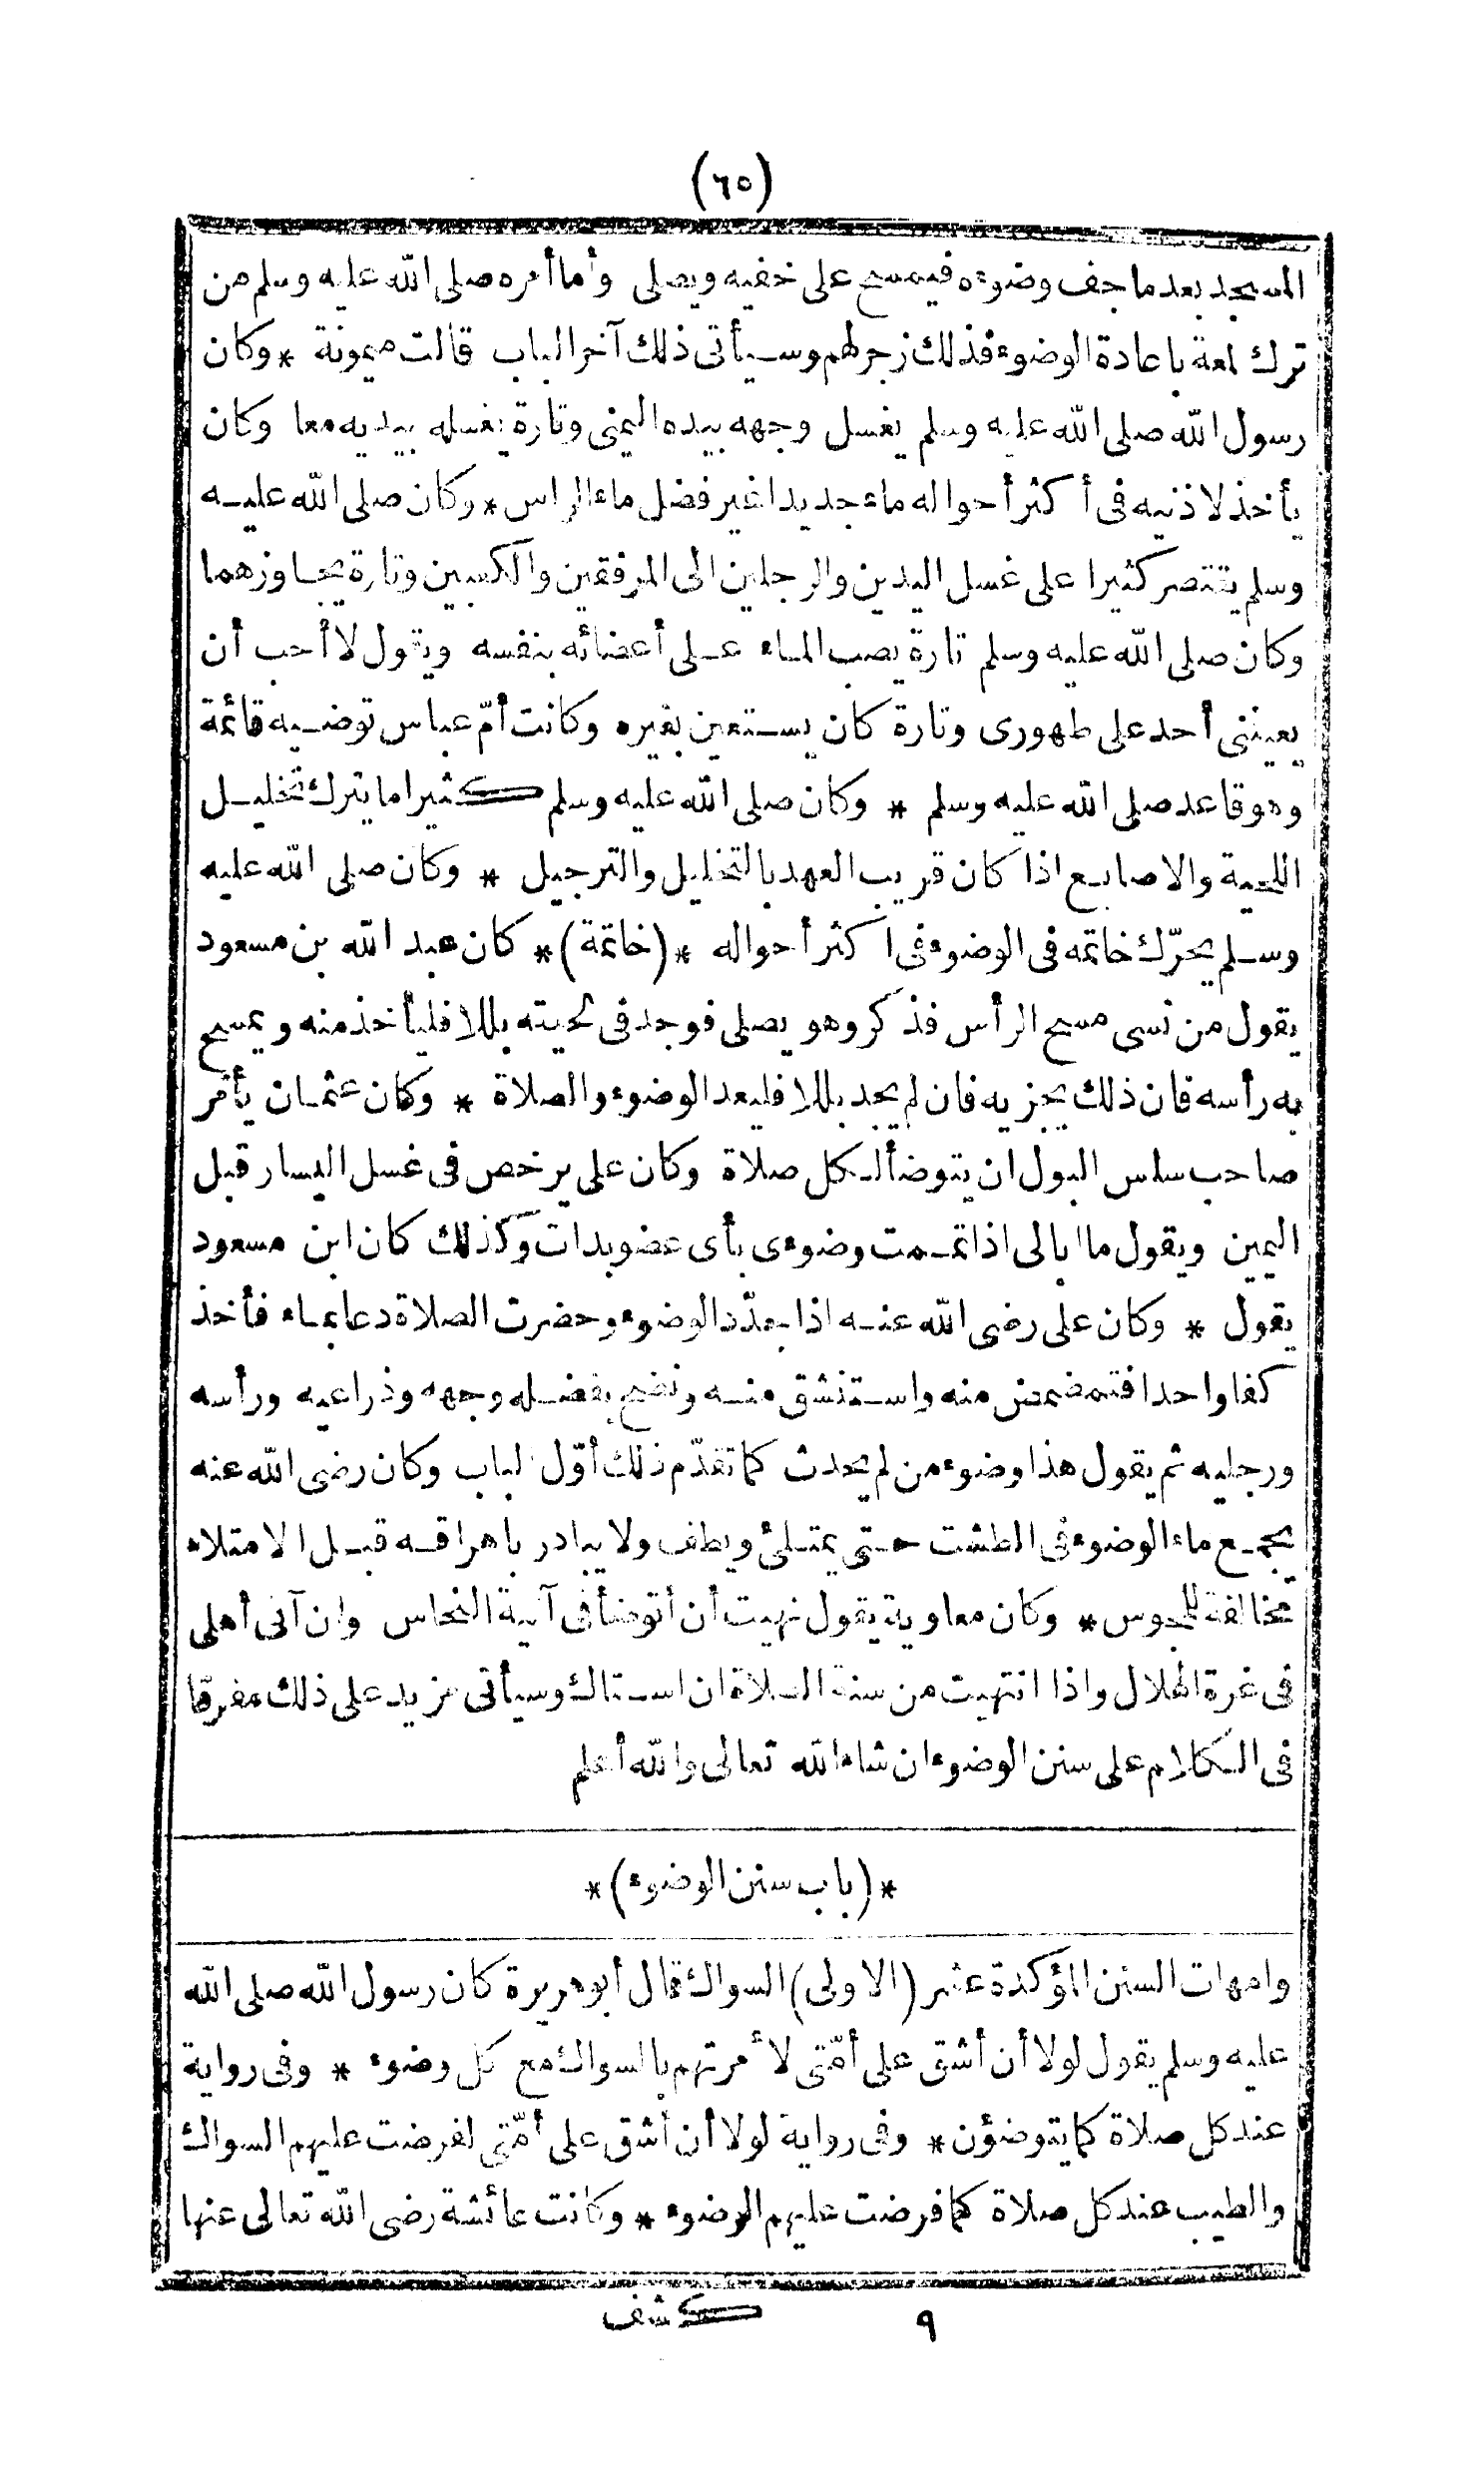 (٦٥)
المسجد بعد ما جف وضوءه فيمسح على خفيه ويصلى وأما أمره صلى الله عليه وسلم من
ترك لمعة باعادة الوضوء فذلك زجر لهم وسيأتى ذلك آخر الباب قالت ميمونة * وكان
رسول الله صلى الله عليه وسلم يغسل وجهه بيده اليمنى وتارة يغسله بيديه معا وكان
يأخذ لاذنيه فى أكثر أحواله ماء جديدا غير فضل ماء الراس * وكان صلى الله عليه
وسلم يقتصر كثيرا على غسل اليدين والرجلين الى المرفقين والكعبين وتارة يجاوزهما
وكان صلى الله عليه وسلم تارة يصب الماء على أعضائه بنفسه ويقول لا أحب أن
يعيننى أحد على طهورى وتارة كان يستعين بغيره وكانت أمّ عباس توضيه قائمة
وهو قاعد صلى الله عليه وسلم * وكان صلى الله عليه وسلم كثيرا ما يترك تخليل
اللحية والاصابع اذا كان قريب العهد بالتخليل والترجيل * وكان صلى الله عليه
وسلم يحرّك خاتمه فى الوضوء فى اكثر أحواله *(خاتمة)* كان عبد الله بن مسعود
يقول من نسى مسح الرأس فذكر وهو يصلى فوجد فى لحيته بللا فليأخذ منه ويمسح
به رأسه فان ذلك يجزيه فان لم يجد بللا فليعد الوضوء والصلاة * وكان عثمان يأمر
صاحب سلس البول ان يتوضأ لكل صلاة وكان على يرخص فى غسل اليسار قبل
اليمين ويقول ما ابالى اذا تممت وضوءى بأى عضو بدات وكذلك كان ابن مسعود
يقول * وكان على رضى الله عنه اذا جدّد الوضوء وحضرت الصلاة دعا بماء فأخذ
كفا واحدا فتمضمض منه واستنشق منه ونضح بفضله وجهه وذراعيه ورأسه
ورجليه ثم يقول هذا وضوء من لم يحدث كما تقدّم ذلك أوّل الباب وكان رضى الله عنه
يجمع ماء الوضوء فى الطشت حتى يمتلئ ويطف ولا يبادر باهراقه قبل الامتلاء
مخالفة للمجوس * وكان معاوية يقول نهيت أن أتوضأ فى آنية النحاس وان آتى أهلى
فى غرة الهلال واذا انتهيت من سنة الصلاة ان استاك وسيأتى مزيد على ذلك مفرقا
فى الكلام على سنن الوضوء ان شاء الله تعالى والله أعلم
*(باب سنن الوضوء)*
وامهات السنن المؤكدة عشر (الاولى) السواك قال أبو هريرة كان رسول الله صلى الله
عليه وسلم يقول لولا أن أشق على أمّتى لأمرتهم بالسواك مع كل وضوء * وفى رواية
عند كل صلاة كما يتوضؤن * وفى رواية لولا أن أشق على أمّتى لفرضت عليهم السواك
والطيب عند كل صلاة كما فرضت عليهم الوضوء * وكانت عائشة رضى الله تعالى عنها
٩ كشف